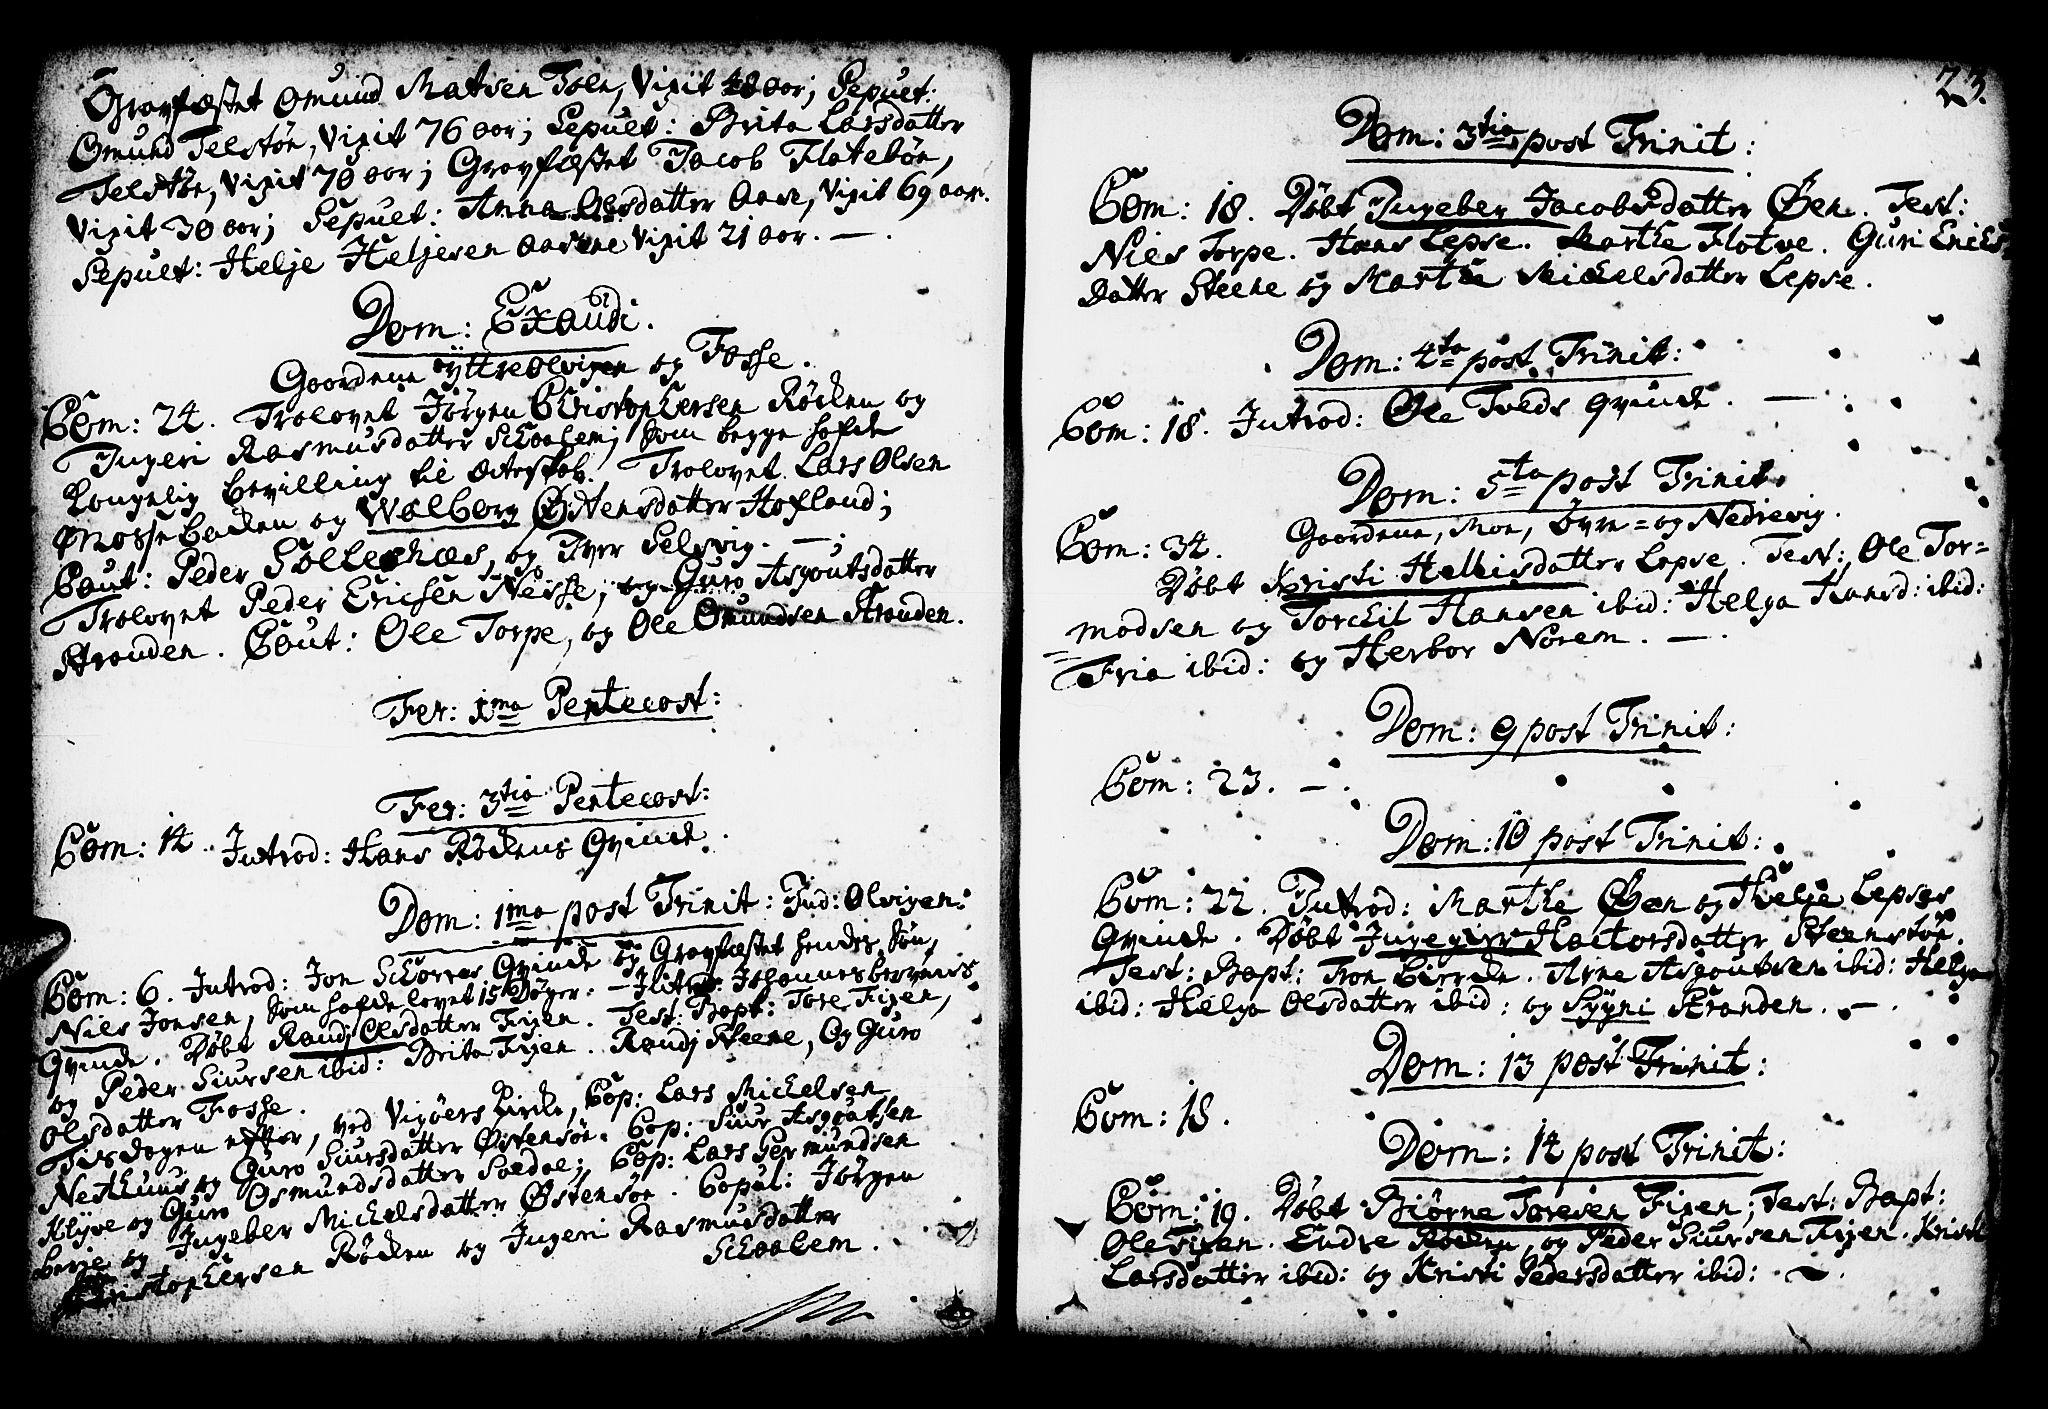 Gravfæstet Omund Matsen Toen, Vixit 48 aar; Sepult:
Omund Telstøe, Vixit 76 aar; Sepult: Brita Larsdatter
Telstøe, Vixit 70 aar; Gravfæstet Jacob Flatebøe,
Vixit 30 aar; Sepult: Anna Olsdatter Aase, Vixit 69 aar.
Sepult: Helje Heljesen Vixit 21 aar. —.
Dom: Exaudi.
Gaardene yttre Olvigen og Fosse.
Com: 24. Trolovet Jörgen Christophersen Röchen og
Jngeri Rasmusdatter Schaalem; som begge hafde
Kongelig bevilling til ægteskab. Trolovet Lars Olsen
Mosse backen og Walborg Østensdatter Hofland;
Caut: Peder Sollesnæs, og Iver Selsvig. —.
Trolovet Peder Ericsen Neisse, og Guro Asgoutsdatter
Stranden. Caut: Ole Torpe, og Ole Omundsen Stranden.
Fer: 1ma Pentecost:
Fer: 3tia Pentecost:
Com: 14. Jntrod: Hans Röchens Qvinde.
Dom: 1ma post Trinit: Jnd: Olvigen:
Com: 6. Jntrod: Jon Qvinde og Gravfæstet hendes Søn,
Niels Jonsen, som hafde levet 15 Døger. — Johannes
Qvinde. Døbt Randj Olsdatter Fixen. Test: Bapt: Tore Fixen,
og Peder Siursen ibid: Brita Fixen. Randj Steene, og Guro
Olsdatter Fosse.
Tirsdagen efter, ved Vigøers Kirche, Cop: Lars Mickelsen
Nesthuus og Guro Siursdatter Østensøe. Cop: Siur Asgoutsen
Klyve og Guro Osmundsdatter Soldal; Cop: Lars Germundsen
Berje og Jngeber Mickelsdatter Østensøe. Copul: Jörgen
Christophersen Röchen og Jngeri Rasmusdatter
Schaalem.
23.
Dom: 3tia post Trinit:
Com: 18. Døbt Jngeber Jacobsdatter Øen. Test:
Niels Torpe. Hans Lepse. Marthe Flotve. Guri Erichs
Datter Steene og Marthe Mickelsdatter Lepse.
Dom: 4ta post Trinit:
Com: 18. Jntrod: Ole Tveds Qvinde. —.
Dom: 5ta post Trinit.
Gaardene, Moe, Øvre= og Nedrevig.
Com: 34.
Døbt Kristi Helliesdatter Lepse. Test: Ole Tor=
modsen og Torchil Hansen ibid: Helga Hansd: ibid:
Fria ibid: og Herbor Norem. —.
Dom: 9 post Trinit:
Com: 23. —.
Dom: 10 post Trinit:
Com: 22. Jntrod: Marthe Øen og Helje Lepses
Qvinde. Døbt Hactorsdatter Steenstøe.
Test: Bapt: Jon Arne Asgoutsen ibid: Helga
ibid: Helga Olsdatter ibid: og Sygni Stranden. —
Dom: 13 post Trinit:
Com: 18.
Dom: 14 post Trinit:
Com: 19. Døbt Biørne Toresen Fixen; Test: Bapt:
Ole Fixen. Endre Röchen, og Peder Siursen Fixen. Kristi
Larsdatter ibid: og Kristi Pedersdatter ibid: —.